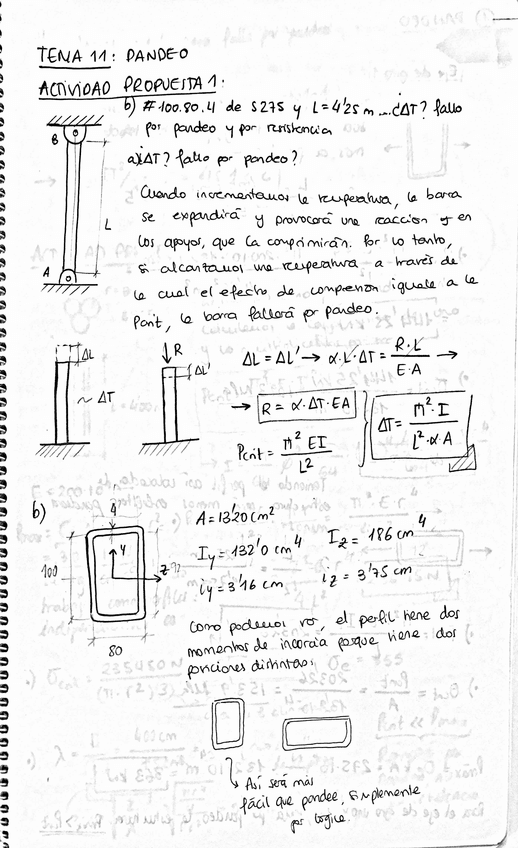 TEMA 11: PANDEO
ACTIVIDAD PROPUESTA 1:
b) #100.80.4 de S275 y L=4'25 m ... ¿ΔT? fallo
por pandeo y por resistencia
a) ¿ΔT? fallo por pandeo?
Cuando incrementamos la temperatura, la barra
se expandirá y provocará una reacción en
los apoyos, que la comprimirán. Por lo tanto,
si alcanzamos una temperatura a través de
la cual el efecto de compresión iguale a la
Pcrit, la barra fallará por pandeo.
B
L
A
ΔL
~ ΔT
R
ΔL'
ΔL = ΔL' → α·L·ΔT = R·L / E·A →
→ R = α·ΔT·EA
Pcrit = π² EI / L²
ΔT = π²·I / L²·α·A
b)
4
100
80
Y
Z
A = 13'20 cm²
Iy = 132'0 cm⁴
Iz = 186 cm⁴
iy = 3'16 cm
iz = 3'75 cm
Como podemos ver, el perfil tiene dos
momentos de inercia porque tiene dos
posiciones distintas:
Así será más
fácil que pandee, simplemente
por lógica.